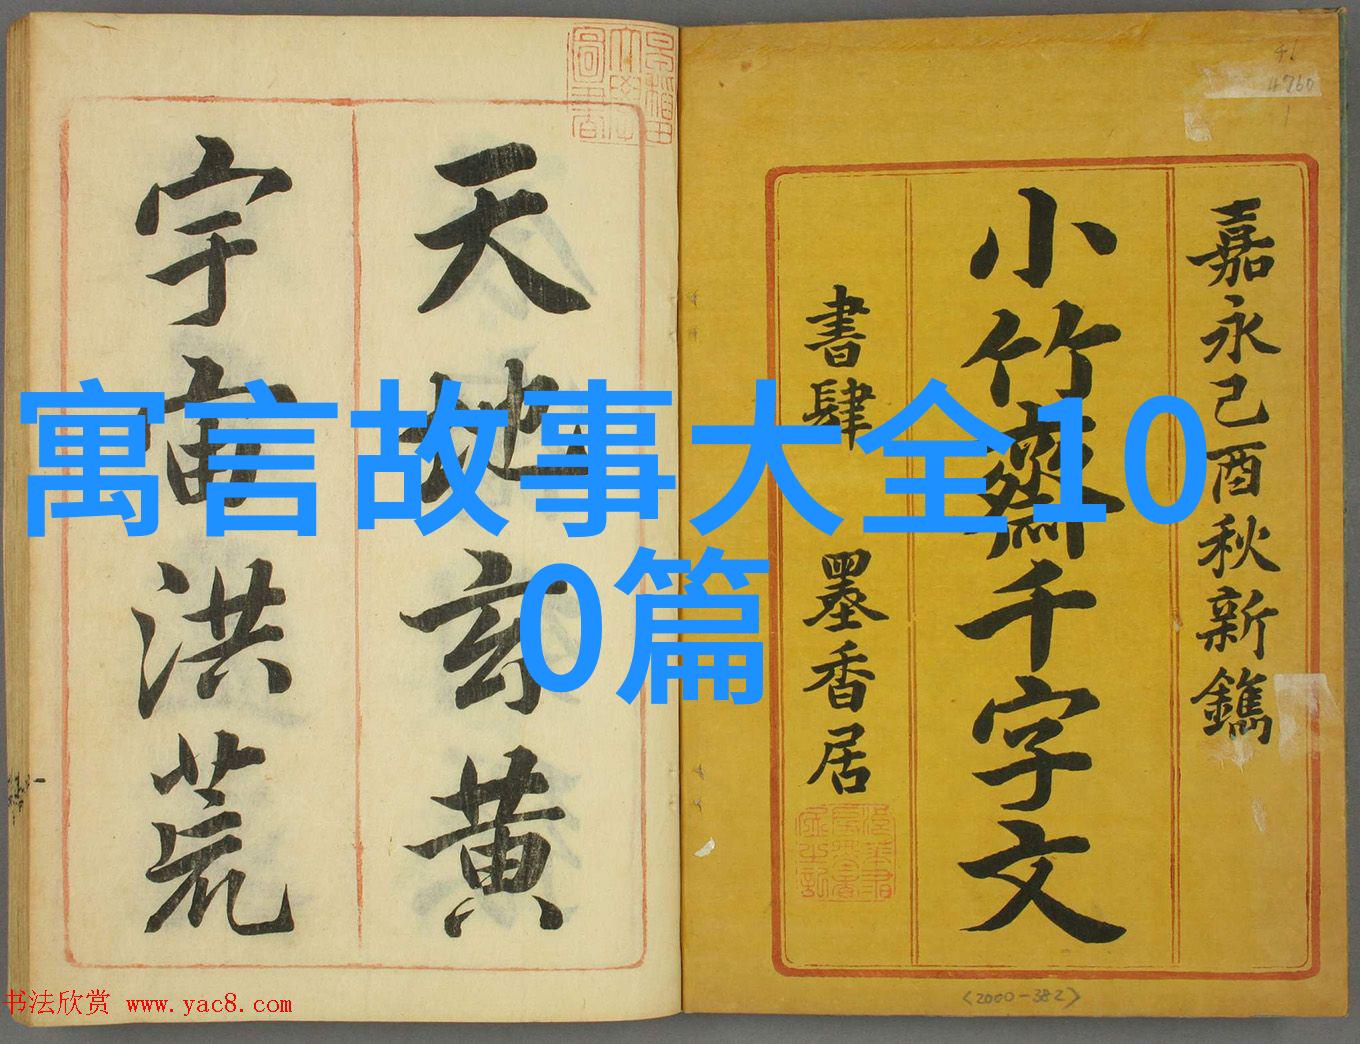 嘉永己酉秋新鐫
小竹齋千字文
書肆 墨香居
天地玄黄
宇宙洪荒
寓言故事大全10
0篇
46
4760
<2000-382>
书法欣赏 www.yac8.com